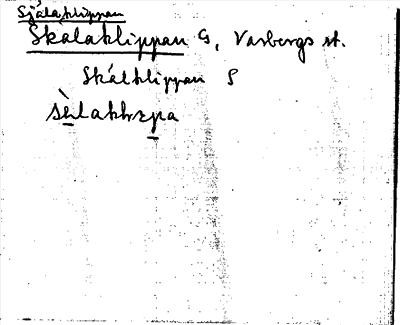 Själaklippan
Skalaklippan G, Varbergs st.
Skálklippan S
sèlaklıpa